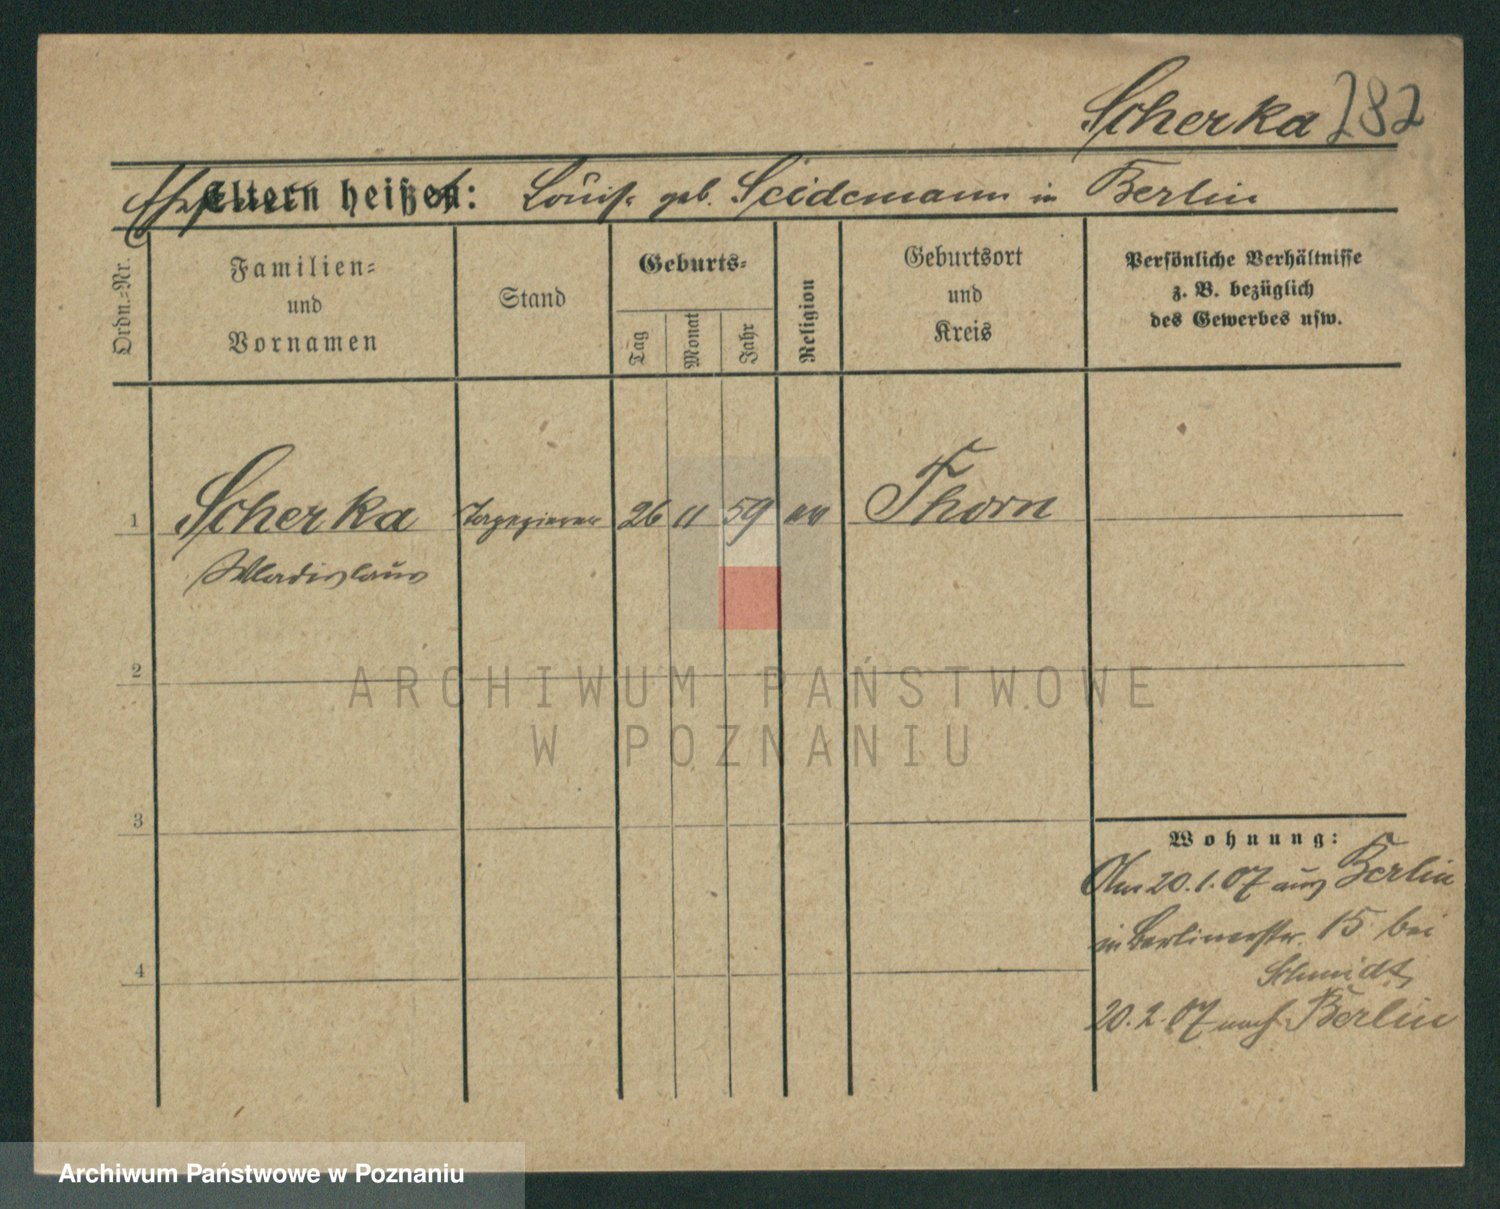 Scherka 282
Eltern heißen: Louise geb. Seidemann in Berlin
Ordn.-Nr.
Familien- und Vornamen
Stand
Geburts-
Tag
Monat
Jahr
Religion
Geburtsort und Kreis
Persönliche Verhältnisse
z. B. bezüglich
des Gewerbes usw.
1 Scherka 26 11 59 Thorn
Wladislaus
2
ARCHIWUM PAŃSTWOWE
W POZNANIU
3
Wohnung:
Am 20.1.07 aus Berlin
in Berlinerstr. 15 bei
Schmidt
4
20.2.07 nach Berlin
Archiwum Państwowe w Poznaniu